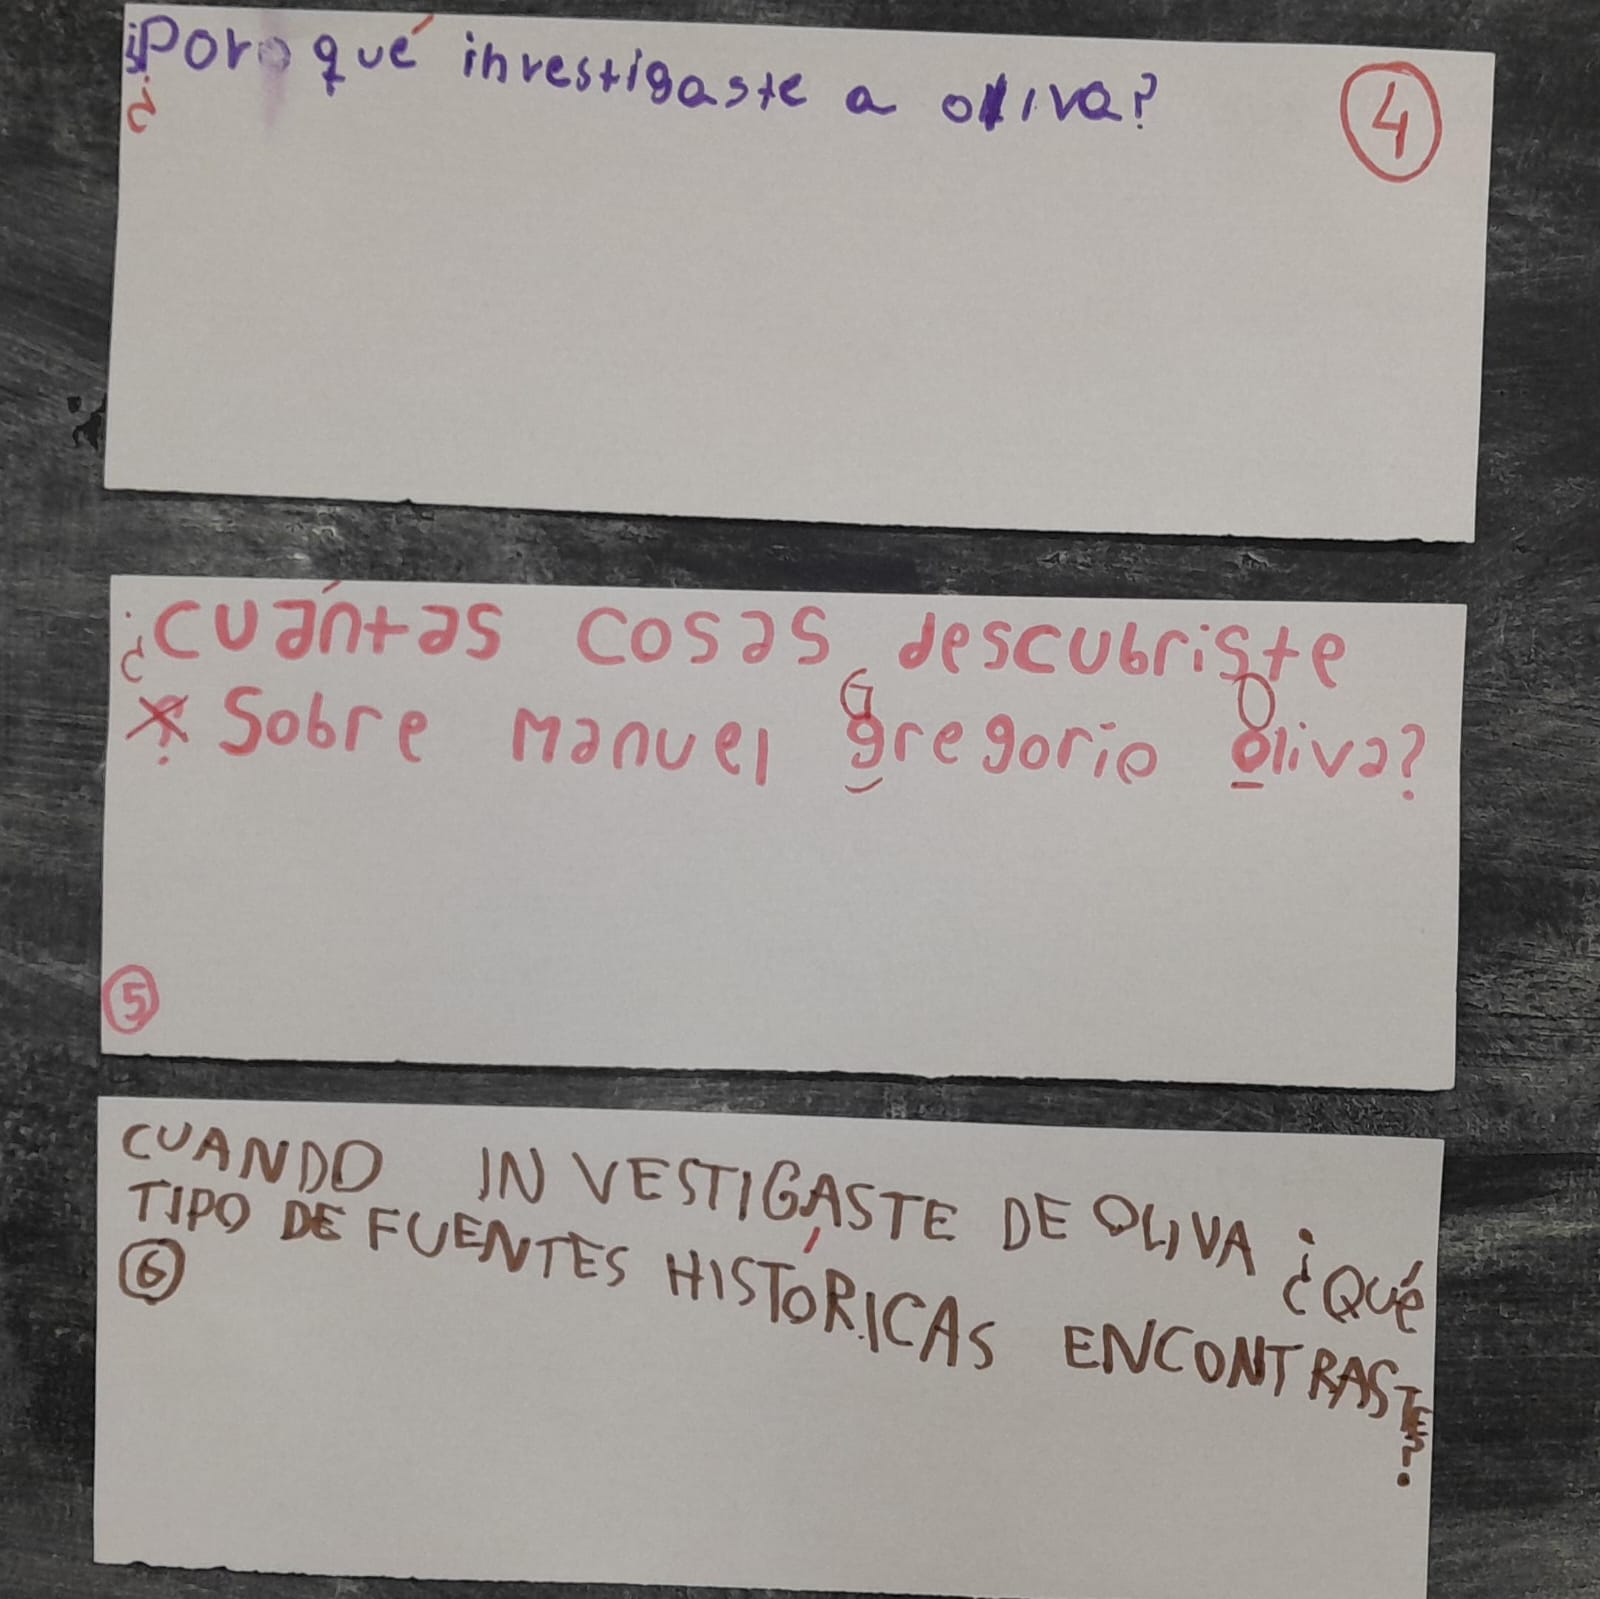 ¿Por qué investigaste a oliva?
4
¿cuántas cosas descubriste
Sobre manuel Gregorio Oliva?
5
CUANDO INVESTIGASTE DE OLIVA ¿QUÉ
TIPO DE FUENTES HISTÓRICAS ENCONTRASTE?
6